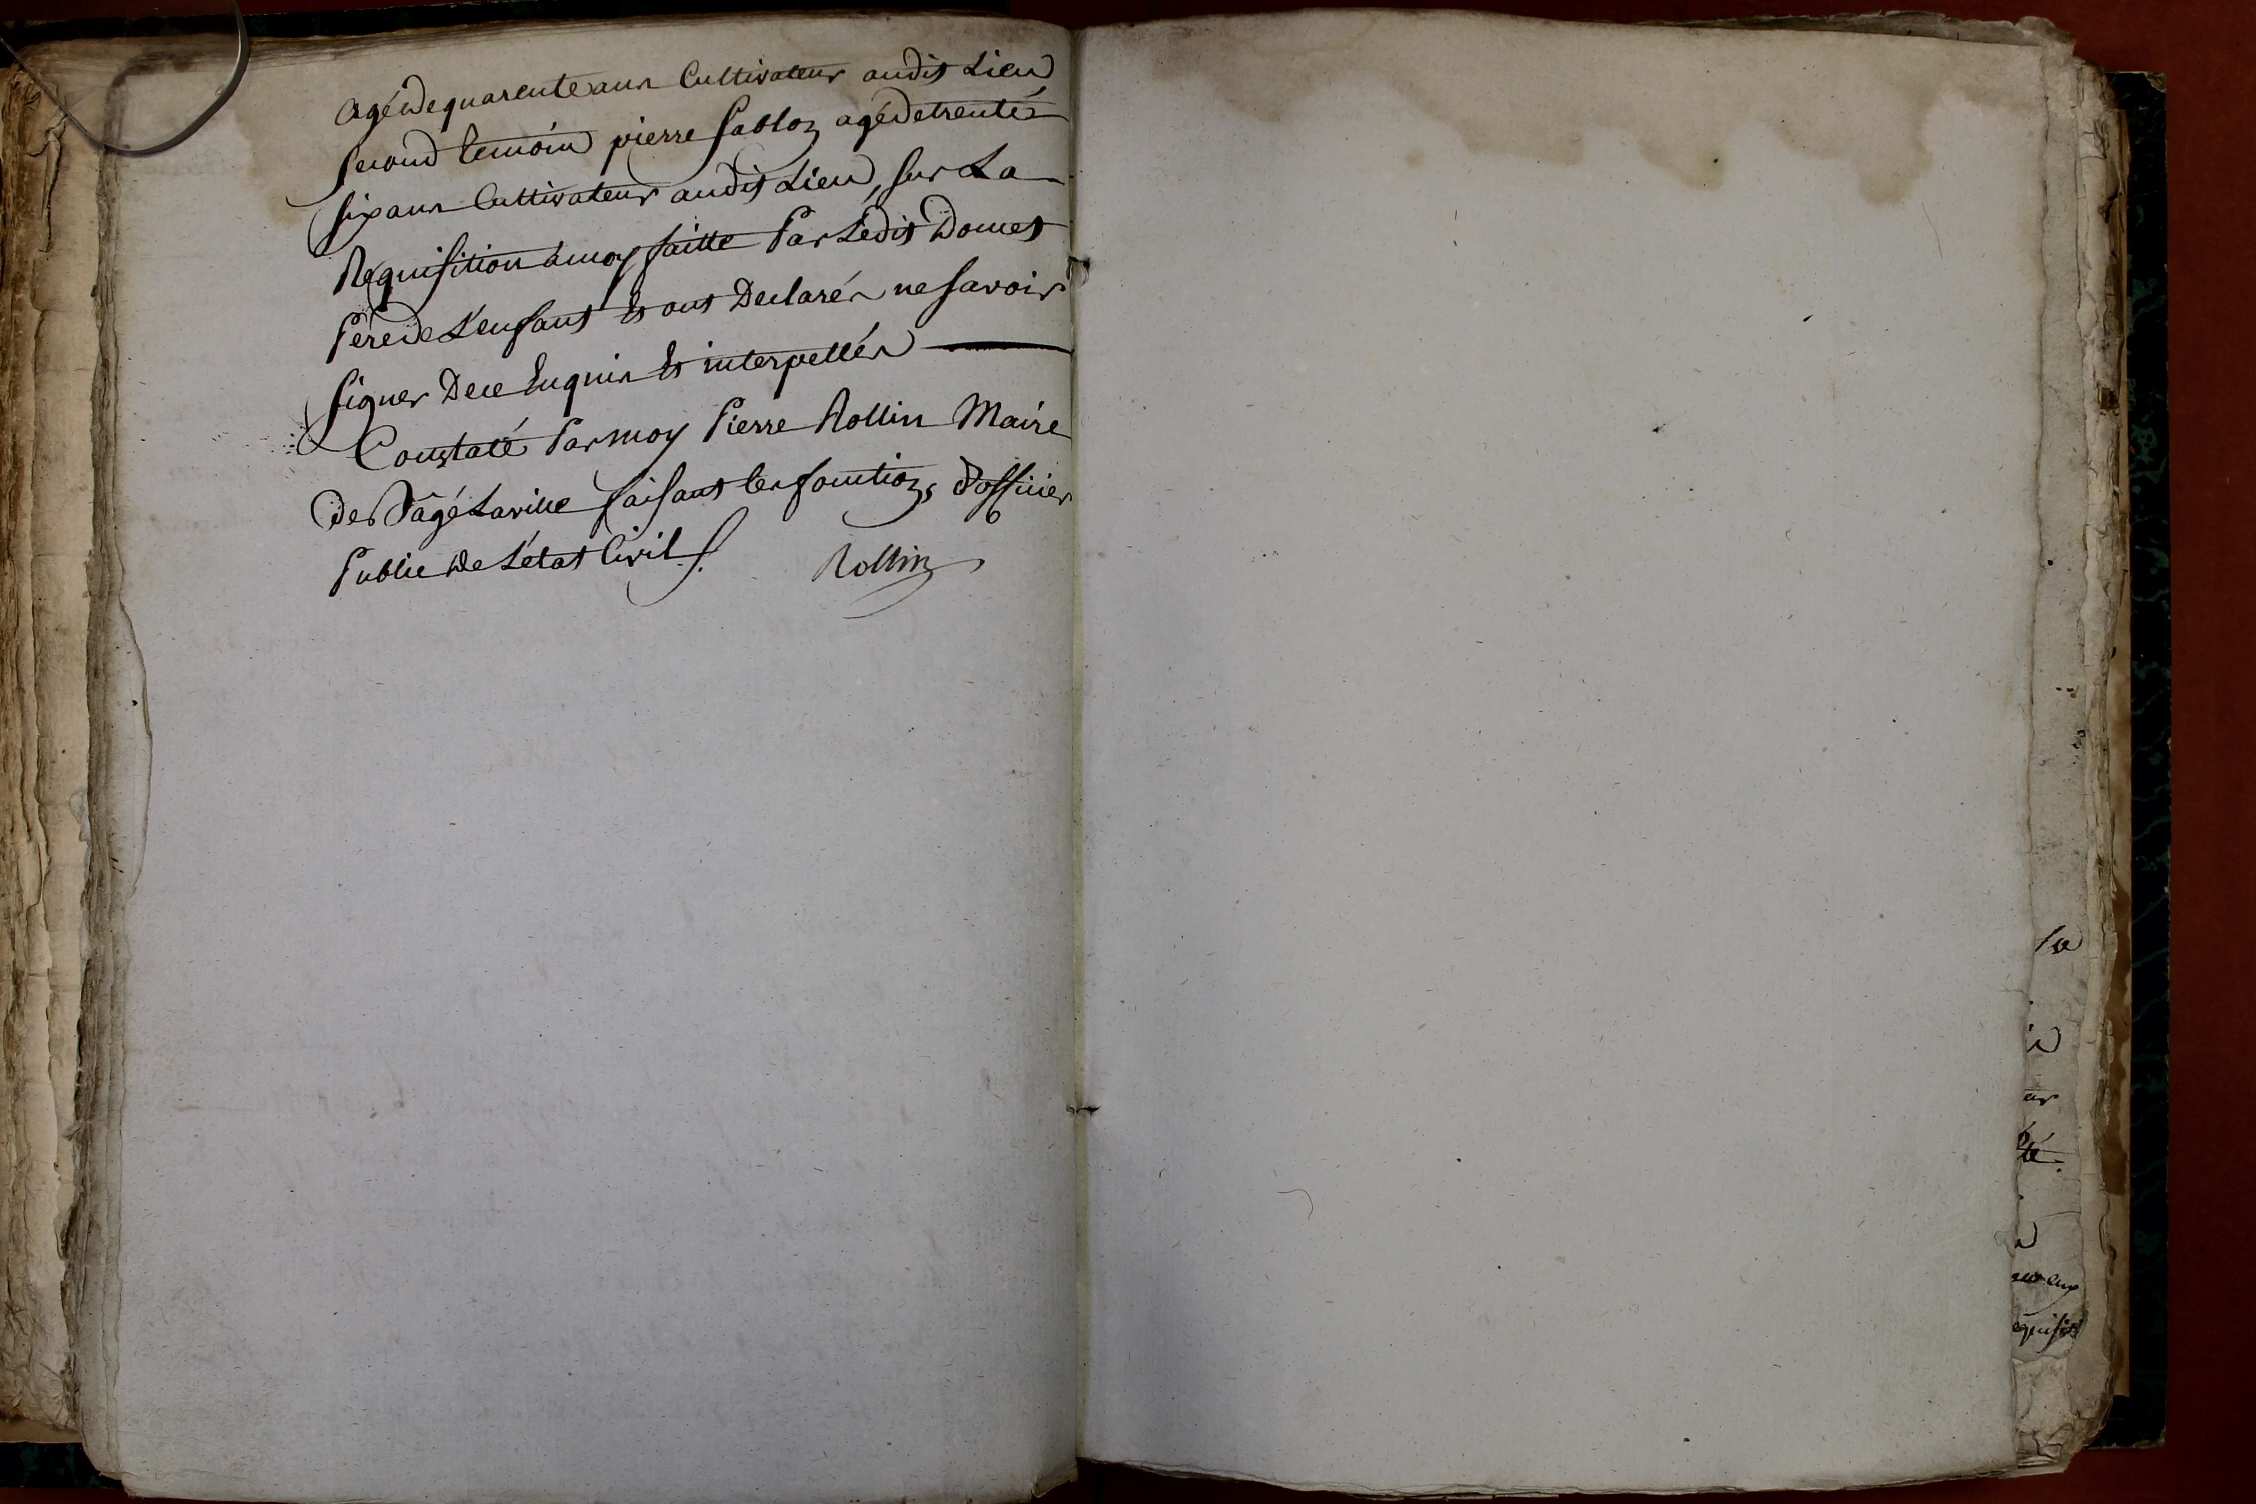 agé de quarente ans Cultivateur audit Lieu
second temoin pierre Sablon agé de trente
six ans Cultivateur audit Lieu, sur La
Requisition a moy faitte Par Ledit Domet
Pere de L'enfant Et ont Declarés ne savoir
signer De ce Enquis Et interpellés
Constaté Par moy Pierre Rollin Maire
de Sâgé Laville faisant les fonctions d'officier
Public de L'état Civil
Rollin